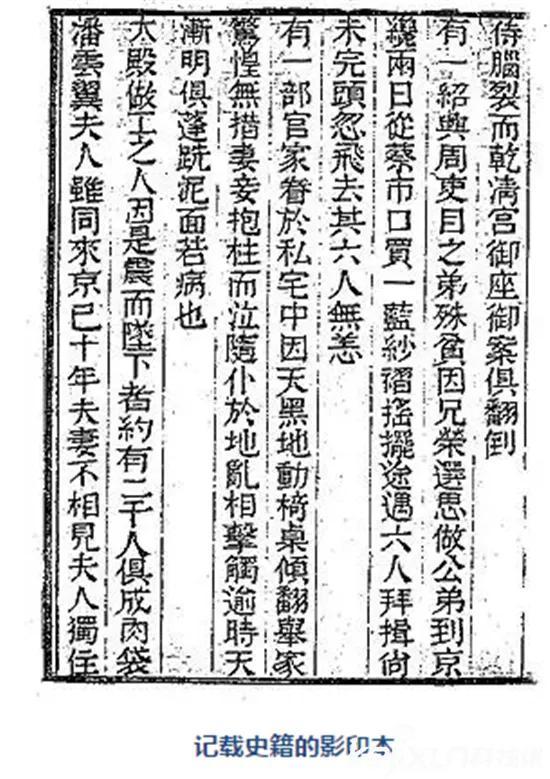 侍腦裂而乾清宮御座御案俱翻到
有一紹興周吏目之弟殊貧因兄榮選思做公弟到京
纔兩日從蔡市口買一藍紗褶搖擺途遇六人拜揖尙
未完頭忽飛去其六人無恙
有一部官家眷於私宅中因天黑地動椅桌傾翻舉家
驚惶無措妻妾抱柱而泣隨仆於地亂相擊觸逾時天
漸明俱蓬跣泥面若病也
大殿做工之人因是震而墜下者約有二千人俱成肉袋
潘雲翼夫人雖同來京已十年夫妻不相見夫人獨住
记载史籍的影印本